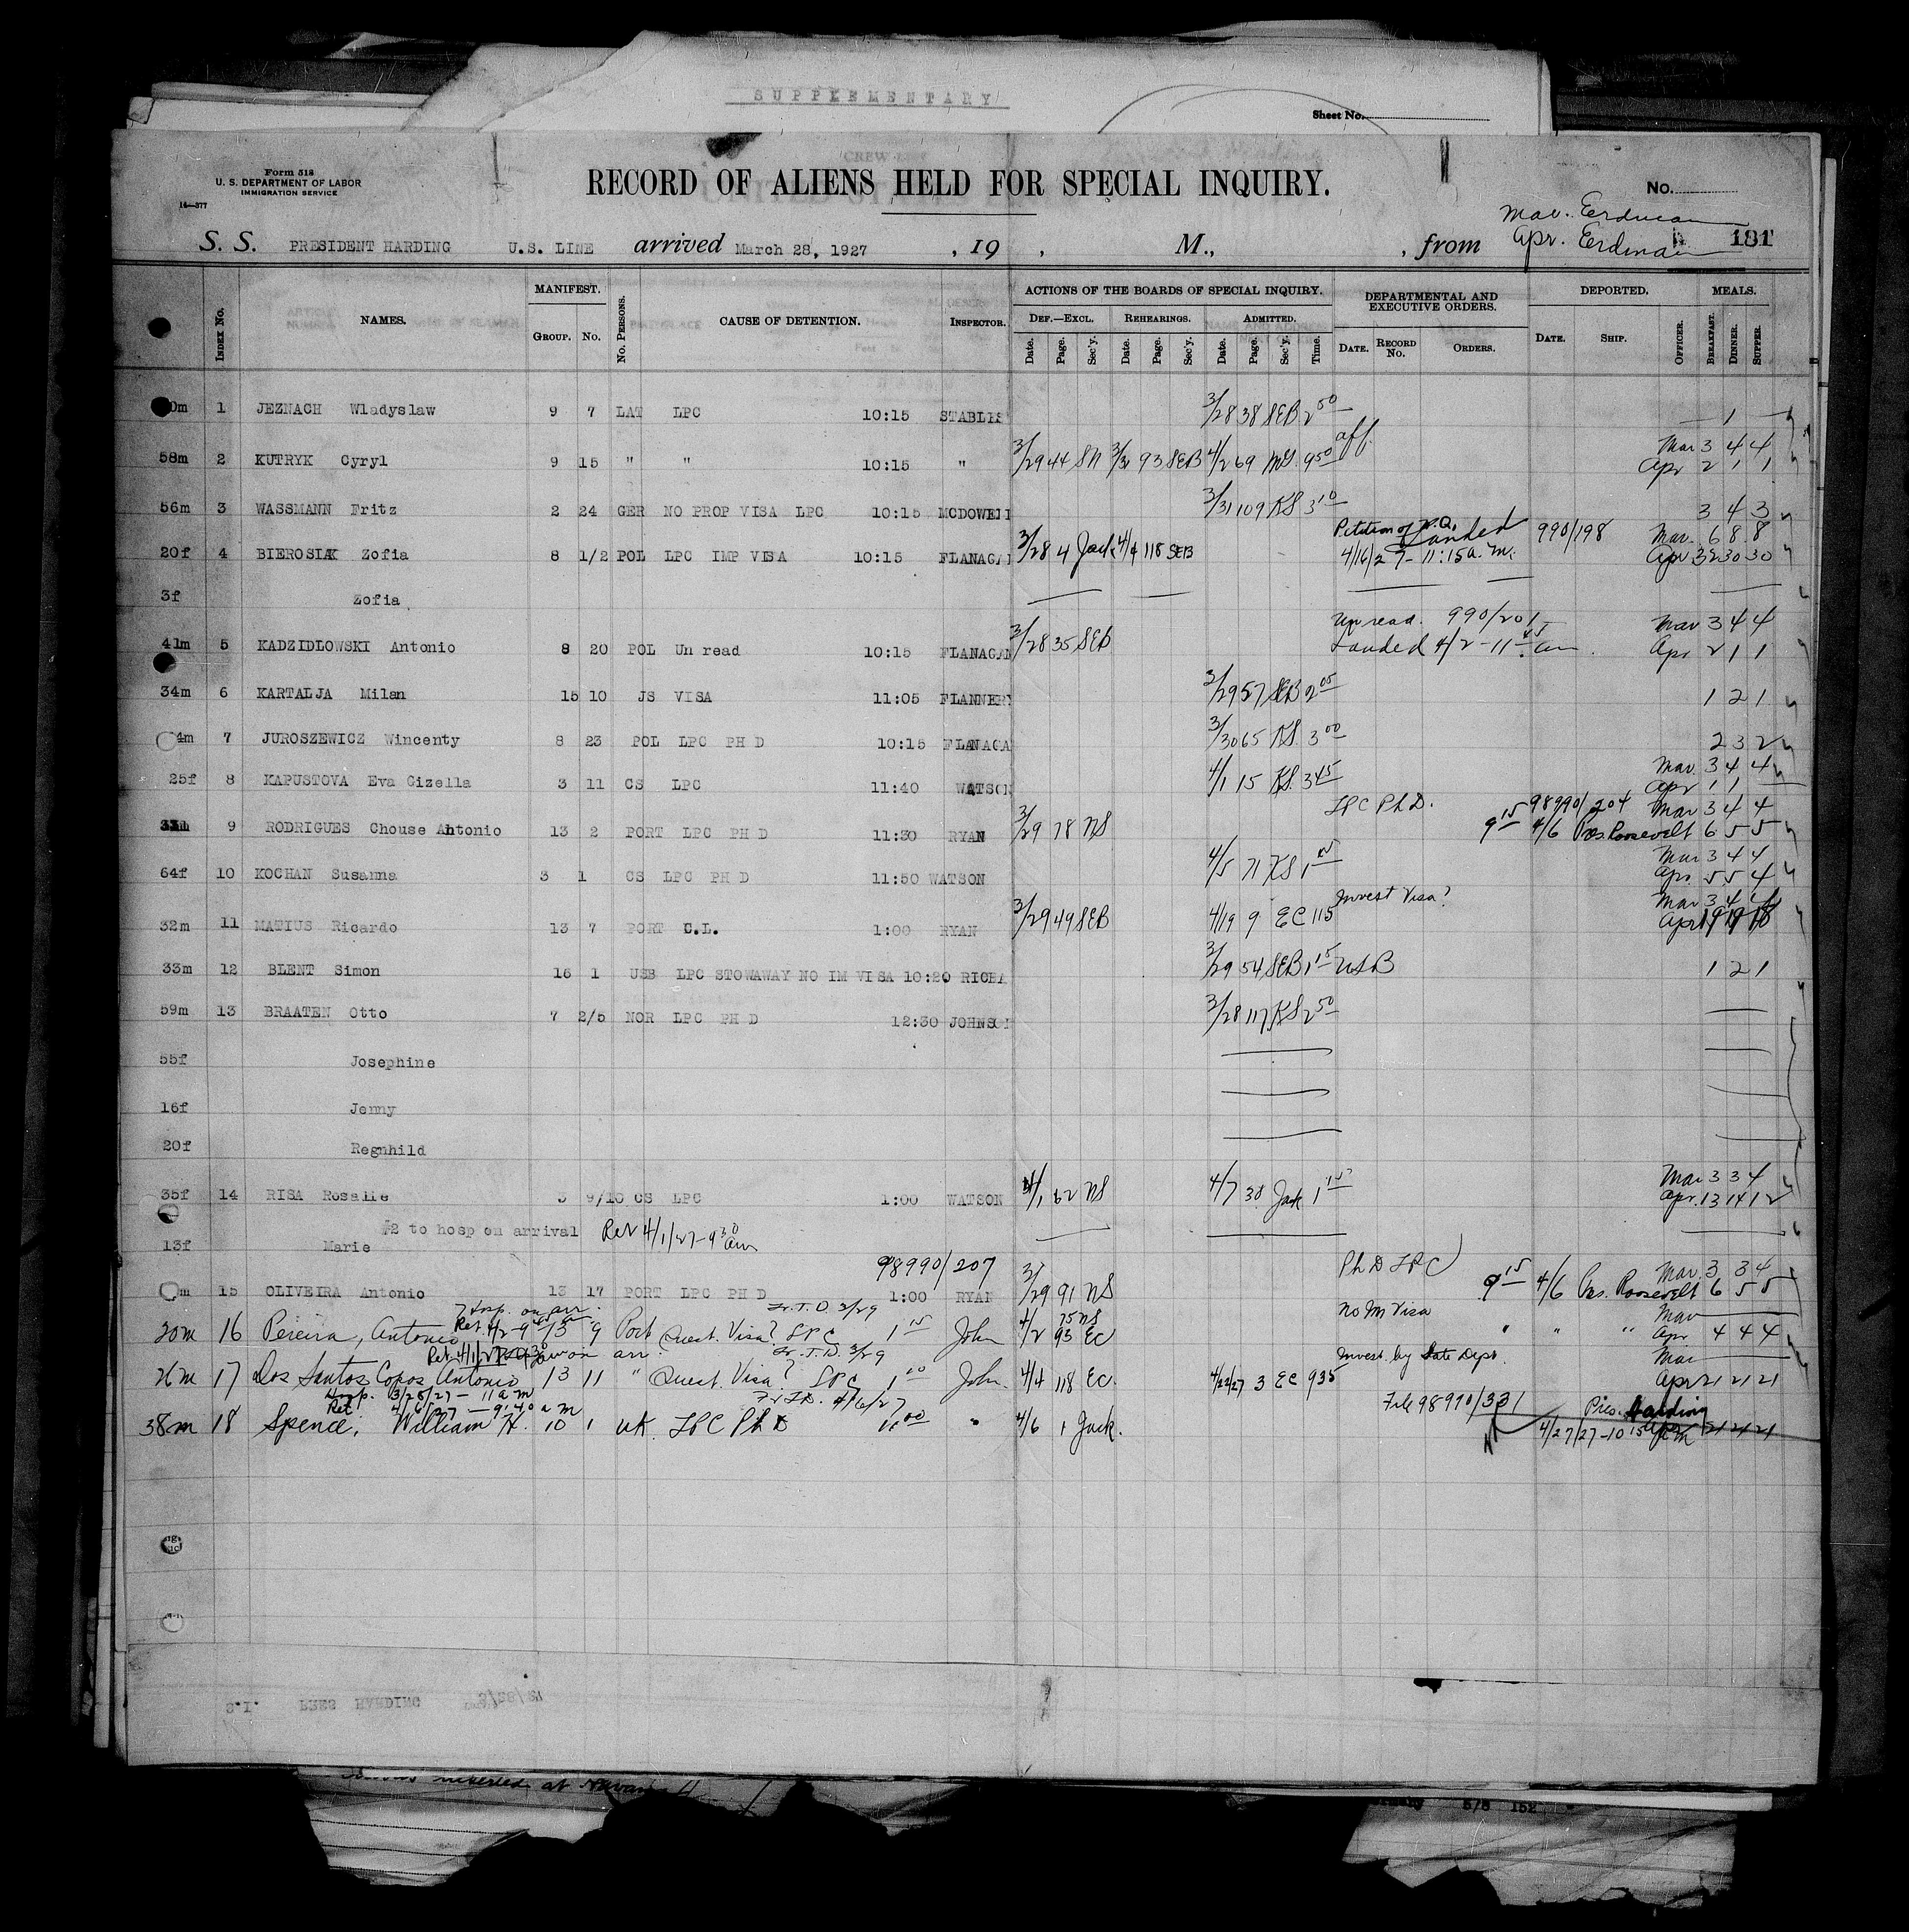 SUPPLEMENTARY
Sheet No.
Form 518
U. S. DEPARTMENT OF LABOR
IMMIGRATION SERVICE
14—377
RECORD OF ALIENS HELD FOR SPECIAL INQUIRY.
No.
Mar. Erdman
Apr. Erdman 181
S. S. PRESIDENT HARDING U.S. LINE arrived March 28, 1927, 19 , M., , from
INDEX No. NAMES. MANIFEST. GROUP. No. No. PERSONS. CAUSE OF DETENTION. INSPECTOR. ACTIONS OF THE BOARDS OF SPECIAL INQUIRY. DEF.—EXCL. Date. Page. Sec'y. REHEARINGS. Date. Page. Sec'y. ADMITTED. Date. Page. Sec'y. Time. DEPARTMENTAL AND EXECUTIVE ORDERS. DATE. RECORD No. ORDERS. DEPORTED. DATE. SHIP. OFFICER. MEALS. BREAKFAST. DINNER. SUPPER.
0m 1 JEZNACH Wladyslaw 9 7 LAT LPC 10:15 STABLIS 3/28 38 SEB 2 50 — 1 —
58m 2 KUTRYK Cyryl 9 15 " " 10:15 " 3/29 44 SN 3/31 93 SEB 4/2 69 MG 9 50 aff. Mar 3 4 4
Apr 2 1 1
56m 3 WASSMANN Fritz 2 24 GER NO PROP VISA LPC 10:15 MCDOWELL 3/31 109 KS 3 10 3 4 3
20f 4 BIEROSIAK Zofia 8 1/2 POL LPC IMP VISA 10:15 FLANAGAN 3/28 4 Jack 4/4 118 SEB Petition of N.Q. Landed 990/198 Mar. 6 8 8
4/16/27 - 11:15 a.m. Apr 32 30 30
3f Zofia
41m 5 KADZIDLOWSKI Antonio 8 20 POL Un read 10:15 FLANAGAN 3/28 35 SEB Un read. 990/201 Mar 3 4 4
Landed 4/2 - 11 45 am Apr 2 1 1
34m 6 KARTALJA Milan 15 10 JS VISA 11:05 FLANNERY 3/29 57 SEB 2 05 1 2 1
4m 7 JUROSZEWICZ Wincenty 8 23 POL LPC PH D 10:15 FLANAGA 3/30 65 KS 3 00 2 3 2
25f 8 KAPUSTOVA Eva Gizella 3 11 CS LPC 11:40 WATSON 4/1 15 KS. 3 45 Mar. 3 4 4
Apr 1 1 —
9 RODRIGUES Chouse Antonio 13 2 PORT LPC PH D 11:30 RYAN 3/29 78 NS LPC Ph D. 98990/204 Mar 3 4 4
9 15 4/6 Pres. Roosevelt 6 5 5
64f 10 KOCHAN Susanna 3 1 CS LPC PH D 11:50 WATSON 4/5 71 KS 1 15 Mar 3 4 4
Apr. 5 5 4
32m 11 MATIUS Ricardo 13 7 PORT C.L. 1:00 RYAN 3/29 49 SEB 4/19 9 EC 115 Invest Visa? Mar 3 4 4
Apr 19 19 18
33m 12 BLENT Simon 16 1 USB LPC STOWAWAY NO IM VISA 10:20 RICHA 3/29 54 SEB 1 15 USB 1 2 1
59m 13 BRAATEN Otto 7 2/5 NOR LPC PH D 12:30 JOHNSON 3/28 117 KS 2 50
55f Josephine
16f Jenny
20f Regnhild
35f 14 RISA Rosalie 3 9/10 CS LPC 1:00 WATSON 4/1 62 NS 4/7 38 Jack 1 15 Mar 3 3 4
Apr. 13 14 12
#2 to hosp on arrival Ret 4/1/27 - 9 30 am
13f Marie
98990/207
m 15 OLIVEIRA Antonio 13 17 PORT LPC PH D 1:00 RYAN 3/29 91 NS Ph D LPC 9 15 4/6 Pres. Roosevelt Mar. 3 3 4
6 5 5
Hosp. on arr. Fr. T.D. 3/29
Ret 4/2 - 9
20m 16 Pereira, Antonio 13 9 Port Quest. Visa? LPC 1 15 John 4/2 75 NS 93 EC No Im Visa " " " Mar —
Apr 4 4 4
Ret 4/1/27 on arr. Fr. T.D. 3/29
26m 17 Dos Santos Copos Antonio 13 11 " Quest. Visa? LPC 1 00 John. 4/4 118 EC. 4/22/27 3 EC 935 Invest. by State Dept. Mar —
Apr 21 21 21
Hosp. 3/28/27 - 11 am
Ret 4/6/27 - 9:40 am Fr T.D. 4/6/27
38m 18 Spence, William H. 10 1 UK. LPC Ph D 1:00 " 4/6 1 Jack. File 98990/331 Pres. Harding
4/27/27 - 10 15 am Apr 21 21 21
S.I. PRES HARDING 3/28/27
inserted at
5/5 152